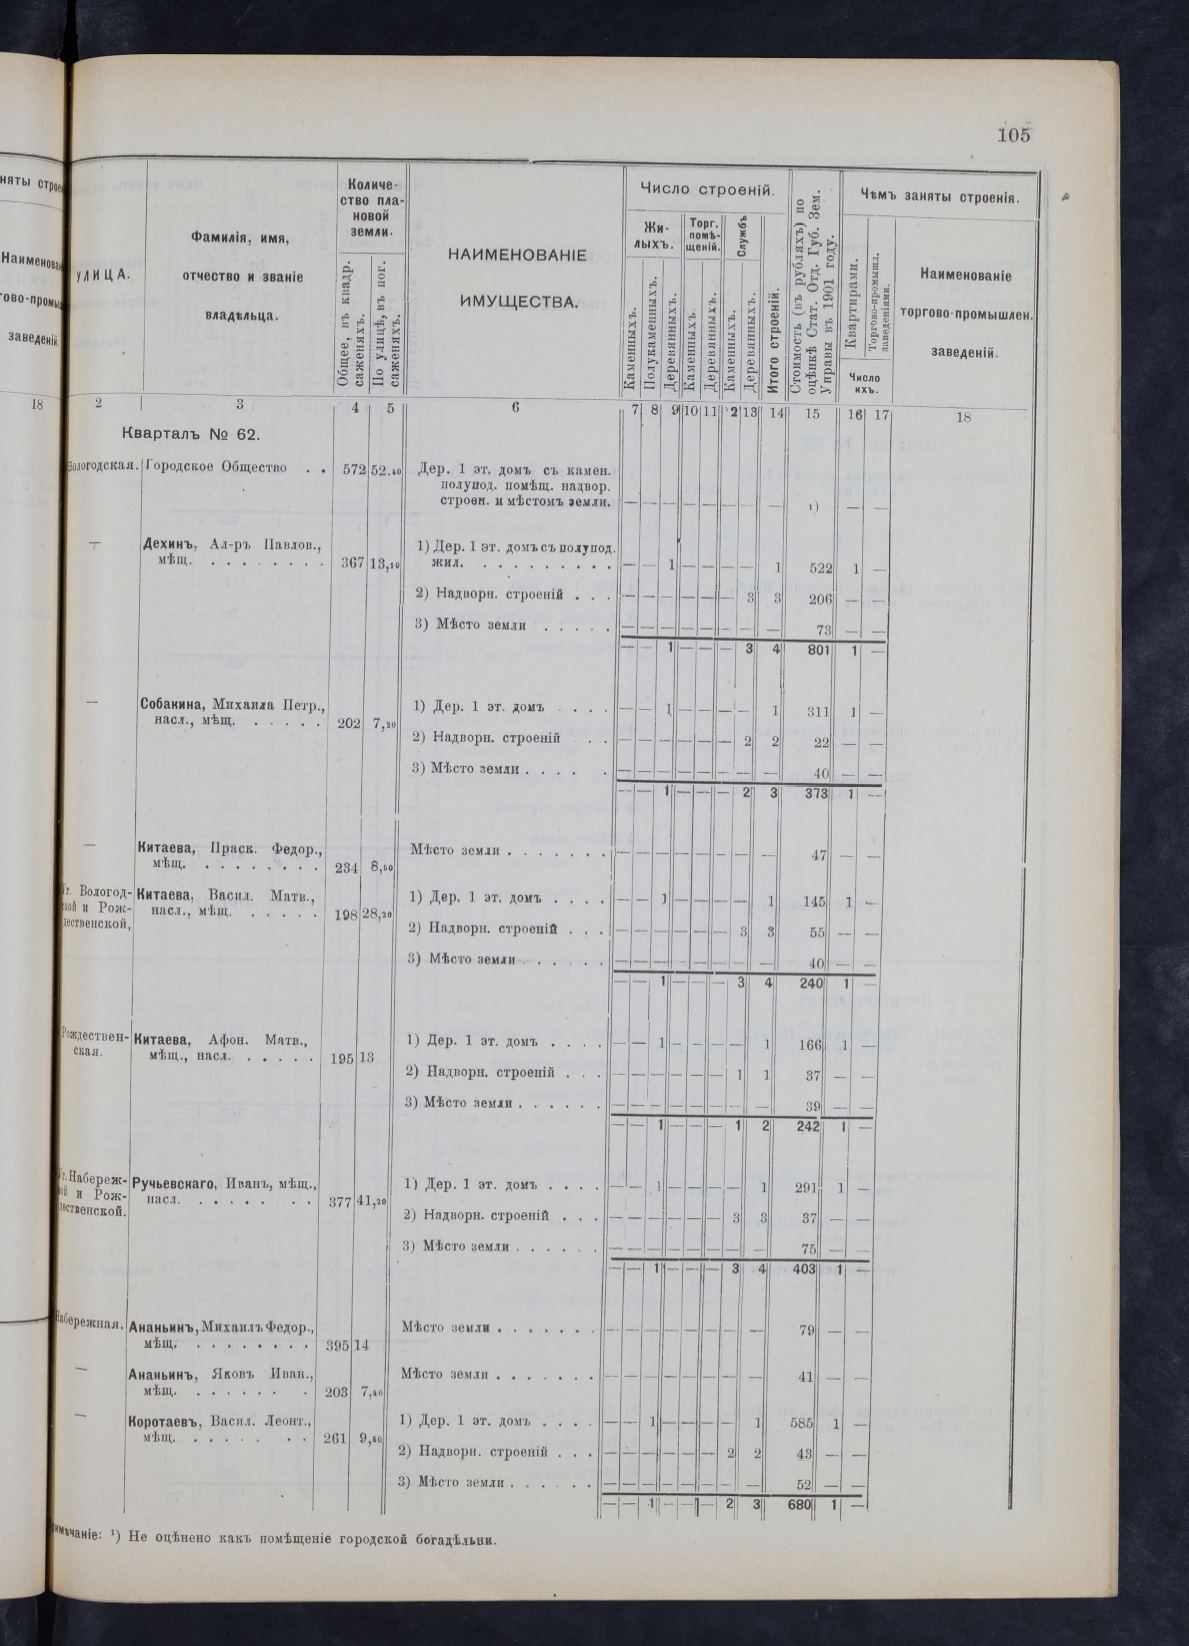 105
няты строе
Наименован
гово-промы
заведеній.
18
УЛИЦА.
Фамилія, имя,
отчество и званіе
владѣльца.
Количе-
ство пла-
новой
земли.
Общее, въ квадр.
саженяхъ.
По улицѣ, въ пог.
саженяхъ.
НАИМЕНОВАНІЕ
ИМУЩЕСТВА.
Число строеній.
Жи-
лыхъ.
Торг.
помѣ-
щеній.
Службъ
Каменныхъ.
Полукаменныхъ.
Деревянныхъ.
Каменныхъ.
Деревянныхъ.
Каменныхъ.
Деревянныхъ.
Итого строеній.
Стоимость (въ рубляхъ) по
оцѣнкѣ Стат. Отд. Губ. Зем.
Управы въ 1901 году.
Чѣмъ заняты строенія.
Квартирами.
Торгово-промышл.
заведеніями.
Число
ихъ.
Наименованіе
торгово-промышлен.
заведеній.
2 3 4 5 6 7 8 9 10 11 12 13 14 15 16 17 18
Кварталъ № 62.
Вологодская. Городское Общество . . 572 52,40 Дер. 1 эт. домъ съ камен.
полупод. помѣщ. надвор.
строен. и мѣстомъ земли. — — — — — — — — ¹) — —
— Дехинъ, Ал-ръ Павлов., 1) Дер. 1 эт. домъ съ полупод.
мѣщ. . . . . . . . . 367 13,10 жил. . . . . . . . . . — — 1 — — — — 1 522 1 —
2) Надворн. строеній . . . — — — — — — 3 3 206 — —
3) Мѣсто земли . . . . . — — — — — — — — 73 — —
— — 1 — — — 3 4 801 1 —
— Собакина, Михаила Петр., 1) Дер. 1 эт. домъ . . . . — — 1 — — — — 1 311 1 —
насл., мѣщ. . . . . . 202 7,20
2) Надворн. строеній . . . — — — — — — 2 2 22 — —
3) Мѣсто земли . . . . . — — — — — — — — 40 — —
— — 1 — — — 2 3 373 1 —
— Китаева, Праск. Федор., Мѣсто земли . . . . . . . — — — — — — — — 47 — —
мѣщ. . . . . . . . . 234 8,50
Уг. Вологод- Китаева, Васил. Матв., 1) Дер. 1 эт. домъ . . . . — — 1 — — — — 1 145 1 —
ской и Рож- насл., мѣщ. . . . . . 198 28,20
дественской, 2) Надворн. строеній . . . — — — — — — 3 3 55 — —
3) Мѣсто земли . . . . . . — — — — — — — — 40 — —
— — 1 — — — 3 4 240 1 —
Рождествен- Китаева, Афон. Матв., 1) Дер. 1 эт. домъ . . . . — — 1 — — — — 1 166 1 —
ская. мѣщ., насл. . . . . . 195 13
2) Надворн. строеній . . . — — — — — — 1 1 37 — —
3) Мѣсто земли . . . . . . — — — — — — — — 39 — —
— — 1 — — — 1 2 242 1 —
Уг. Набереж- Ручьевскаго, Иванъ, мѣщ., 1) Дер. 1 эт. домъ . . . . — — 1 — — — — 1 291 1 —
ной и Рож- насл. . . . . . . . . 377 41,20
дественской. 2) Надворн. строеній . . . — — — — — — 3 3 37 — —
3) Мѣсто земли . . . . . . — — — — — — — — 75 — —
— — 1 — — — 3 4 403 1 —
Набережная. Ананьинъ, Михаилъ Федор., Мѣсто земли . . . . . . . — — — — — — — — 79 — —
мѣщ. . . . . . . . . 395 14
— Ананьинъ, Яковъ Иван., Мѣсто земли . . . . . . . — — — — — — — — 41 — —
мѣщ. . . . . . . . 203 7,40
— Коротаевъ, Васил. Леонт., 1) Дер. 1 эт. домъ . . . . — — 1 — — — — 1 585 1 —
мѣщ. . . . . . . . 261 9,50
2) Надворн. строеній . . . — — — — — — 2 2 43 — —
3) Мѣсто земли . . . . . . — — — — — — — — 52 — —
— — 1 — — — 2 3 680 1 —
Примѣчаніе: ¹) Не оцѣнено какъ помѣщеніе городской богадѣльни.